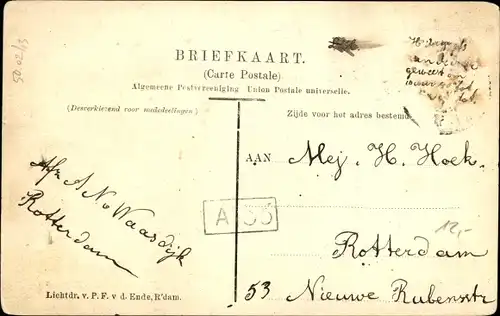 50 02/13
BRIEFKAART.
(Carte Postale)
Algemeene Postvereeniging Union Postale universelle.
(Desverkiezend voor mededeelingen)
Zijde voor het adres bestemd.
geweest
AAN Mej. H. Hoek.
Afz. A. N. Waasdijk
Rotterdam
A 33
12,-
Rotterdam
53 Nieuwe Rubensstr
Lichtdr. v. P. F. v d. Ende, R'dam.